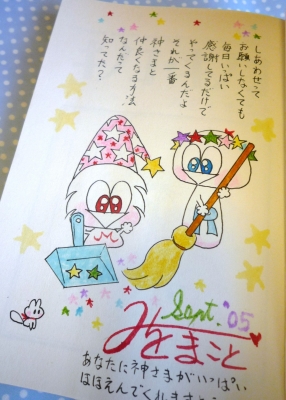 しあわせって
お願いしなくても
毎日いっぱい
感謝してるだけで
やってくるんだよ
それが一番
神さまと
仲良くなる方法
なんだって
知ってた?
Sept. '05
みとまこと
あなたに神さまがいっぱい
ほほえんでくれますよう